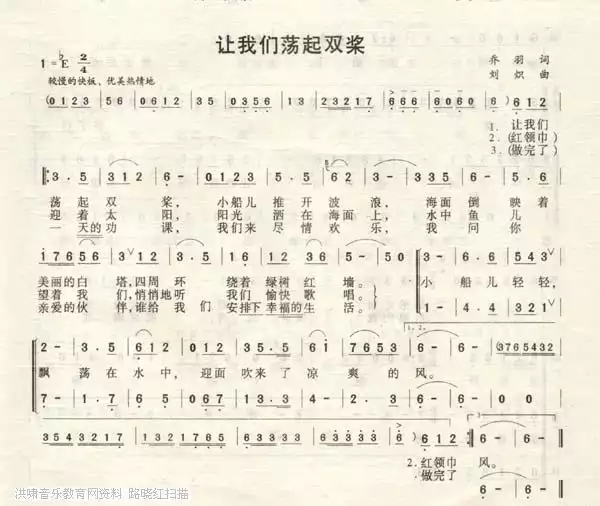 让我们荡起双桨
1=♭E 2/4
乔 羽 词
刘 炽 曲
较慢的快板、优美热情地
(0123 | 56 | 0612 | 35 | 0356 | 13 | 23217 | 666 | 6060 | 6 ) 612 |
1. 让我们
2. (红领巾)
3. (做完了)
3·5 | 312 | 6- | 0123 | 5·5 | 62 | 3- | 335 | 61 | 6- | 5·6 |
荡起双桨, 小船儿推开波浪, 海面倒映着
迎着太阳, 阳光洒在海面上, 水中鱼儿
一天的功课, 我们来尽情欢乐, 我问你
17656 | 3 12 | 3·5 | 16 | 36 | 5- | 50 | 1- | 6·6 | 543 |
美丽的白塔,四周环绕着绿树红墙。 小船儿轻轻,
望着我们,悄悄地听我们愉快歌唱。
亲爱的伙伴,谁给我们安排下幸福的生活。
1- | 4·4 | 321 |
1.2.
2- | 3·5 | 612 | 012 | 35·5 | 61 | 7653 | 6- | 6- | (3765432 |
飘荡在水中,迎面吹来了凉爽的风。
7- | 1·7 | 65 | 067 | 13·3 | 4·2 | 3- | 6- | 6- | 00 |
3543217 | 1321765 | 63333 | 63333 | 6 ) 612 | 6- | 6- |
2. 红领巾 风。
做完了
6- | 6- |
洪啸音乐教育网资料 路晓红扫描